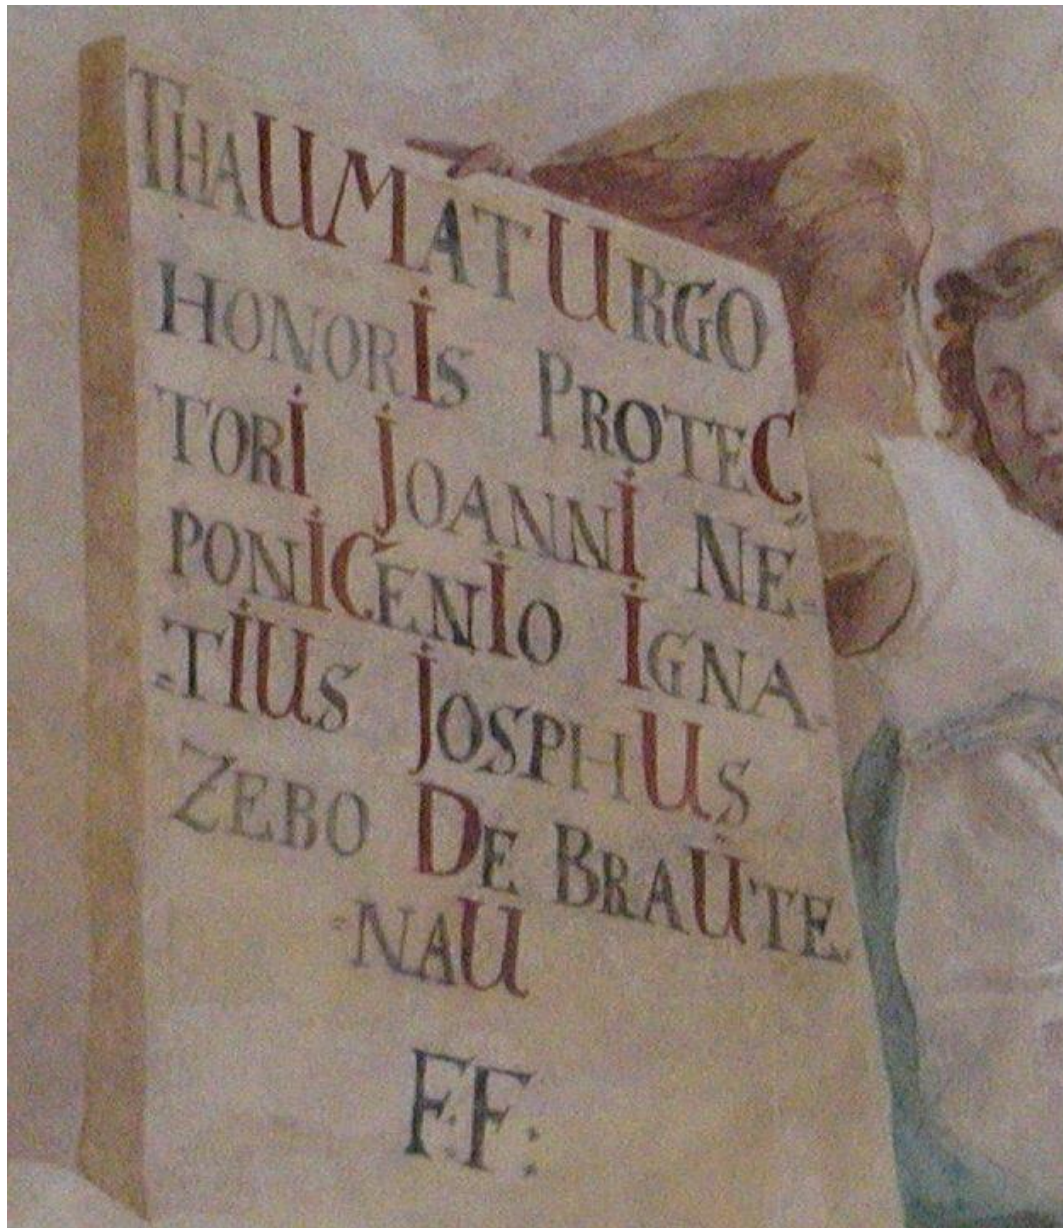 THAUMATURGO
HONORIS PROTEC
TORI JOANNI NE=
PONICENIO IGNA=
=TIUS JOSPHUS
ZEBO DE BRAUTE
=NAU
F.F: